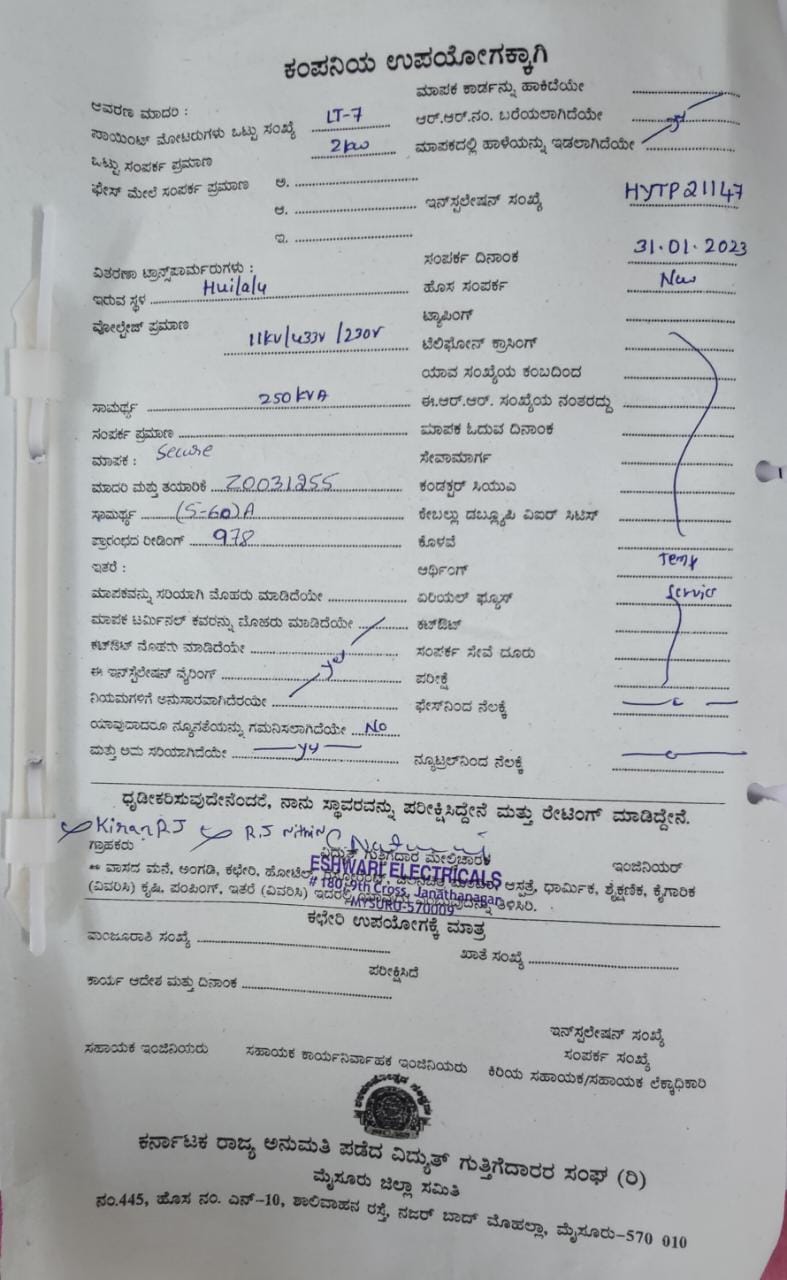 ಕಂಪನಿಯ ಉಪಯೋಗಕ್ಕಾಗಿ
ಆವರಣ ಮಾದರಿ :
ಪಾಯಿಂಟ್ ಮೋಟರುಗಳು ಒಟ್ಟು ಸಂಖ್ಯೆ LT-7
ಒಟ್ಟು ಸಂಪರ್ಕ ಪ್ರಮಾಣ 2kw
ಫೇಸ್ ಮೇಲೆ ಸಂಪರ್ಕ ಪ್ರಮಾಣ ಅ. ..............
ಆ. ..............
ಇ. ..............
ವಿತರಣಾ ಟ್ರಾನ್ಸ್‌ಪಾರ್ಮರುಗಳು :
ಇರುವ ಸ್ಥಳ Huilalu
ವೋಲ್ಟೇಜ್ ಪ್ರಮಾಣ 11KV/433V/230V
ಸಾಮರ್ಥ್ಯ 250KVA
ಸಂಪರ್ಕ ಪ್ರಮಾಣ ..............
ಮಾಪಕ : Secure
ಮಾದರಿ ಮತ್ತು ತಯಾರಿಕೆ Z0031255
ಸಾಮರ್ಥ್ಯ (5-60)A
ಪ್ರಾರಂಭದ ರೀಡಿಂಗ್ 978
ಇತರೆ :
ಮಾಪಕವನ್ನು ಸರಿಯಾಗಿ ಮೊಹರು ಮಾಡಿದೆಯೇ ..............
ಮಾಪಕ ಟರ್ಮಿನಲ್ ಕವರನ್ನು ಮೊಹರು ಮಾಡಿದೆಯೇ ..............
ಕಟ್‌ಔಟ್ ಮೊಹರು ಮಾಡಿದೆಯೇ ..............
ಈ ಇನ್‌ಸ್ಟಲೇಷನ್ ವೈರಿಂಗ್ yes
ನಿಯಮಗಳಿಗೆ ಅನುಸಾರವಾಗಿದೆರಯೇ ..............
ಯಾವುದಾದರೂ ನ್ಯೂನತೆಯನ್ನು ಗಮನಿಸಲಾಗಿದೆಯೇ No
ಮತ್ತು ಅದು ಸರಿಯಾಗಿದೆಯೇ yes
ಮಾಪಕ ಕಾರ್ಡನ್ನು ಹಾಕಿದೆಯೇ ..............
ಆರ್.ಆರ್.ನಂ. ಬರೆಯಲಾಗಿದೆಯೇ yes
ಮಾಪಕದಲ್ಲಿ ಹಾಳೆಯನ್ನು ಇಡಲಾಗಿದೆಯೇ ..............
ಇನ್‌ಸ್ಟಲೇಷನ್ ಸಂಖ್ಯೆ HYTP21147
ಸಂಪರ್ಕ ದಿನಾಂಕ 31.01.2023
ಹೊಸ ಸಂಪರ್ಕ New
ಟ್ಯಾಪಿಂಗ್ ..............
ಟೆಲಿಫೋನ್ ಕ್ರಾಸಿಂಗ್ ..............
ಯಾವ ಸಂಖ್ಯೆಯ ಕಂಬದಿಂದ ..............
ಈ.ಆರ್.ಆರ್. ಸಂಖ್ಯೆಯ ನಂತರದ್ದು ..............
ಮಾಪಕ ಓದುವ ದಿನಾಂಕ ..............
ಸೇವಾಮಾರ್ಗ ..............
ಕಂಡಕ್ಟರ್ ಸಿಯುಎ ..............
ಕೇಬಲ್ಲು ಡಬ್ಲ್ಯೂಪಿ ವಿಐರ್ ಸಿಟಿಸ್ ..............
ಕೊಳವೆ ..............
ಆರ್ಥಿಂಗ್ Temp
ಏರಿಯಲ್ ಫ್ಯೂಸ್ Service
ಕಟ್‌ಔಟ್ ..............
ಸಂಪರ್ಕ ಸೇವೆ ದೂರು ..............
ಪರೀಕ್ಷೆ ..............
ಫೇಸ್‌ನಿಂದ ನೆಲಕ್ಕೆ ..............
ನ್ಯೂಟ್ರಲ್‌ನಿಂದ ನೆಲಕ್ಕೆ ..............
ಧೃಡೀಕರಿಸುವುದೇನೆಂದರೆ, ನಾನು ಸ್ಥಾವರವನ್ನು ಪರೀಕ್ಷಿಸಿದ್ದೇನೆ ಮತ್ತು ರೇಟಿಂಗ್ ಮಾಡಿದ್ದೇನೆ.
Kiran RJ R.J Nithin
ಗ್ರಾಹಕರು ವಿದ್ಯುತ್ ಗುತ್ತಿಗೆದಾರ ಮೇಲ್ವಿಚಾರಕ ಇಂಜಿನಿಯರ್
ESHWARI ELECTRICALS
# 180, 9th Cross, Janathanagar
MYSURU-570009
** ವಾಸದ ಮನೆ, ಅಂಗಡಿ, ಕಛೇರಿ, ಹೋಟೆಲ್, ಆಸ್ಪತ್ರೆ, ಧಾರ್ಮಿಕ, ಶೈಕ್ಷಣಿಕ, ಕೈಗಾರಿಕ
(ವಿವರಿಸಿ) ಕೃಷಿ, ಪಂಪಿಂಗ್, ಇತರೆ (ವಿವರಿಸಿ) ಇದರಲ್ಲಿ ತಿಳಿಸಿರಿ.
ಕಛೇರಿ ಉಪಯೋಗಕ್ಕೆ ಮಾತ್ರ
ಮಂಜೂರಾತಿ ಸಂಖ್ಯೆ .............. ಖಾತೆ ಸಂಖ್ಯೆ ..............
ಪರೀಕ್ಷಿಸಿದೆ
ಕಾರ್ಯ ಆದೇಶ ಮತ್ತು ದಿನಾಂಕ ..............
ಇನ್‌ಸ್ಟಲೇಷನ್ ಸಂಖ್ಯೆ
ಸಂಪರ್ಕ ಸಂಖ್ಯೆ
ಸಹಾಯಕ ಇಂಜಿನಿಯರು ಸಹಾಯಕ ಕಾರ್ಯನಿರ್ವಾಹಕ ಇಂಜಿನಿಯರು ಕಿರಿಯ ಸಹಾಯಕ/ಸಹಾಯಕ ಲೆಕ್ಕಾಧಿಕಾರಿ
ಕರ್ನಾಟಕ ರಾಜ್ಯ ಅನುಮತಿ ಪಡೆದ ವಿದ್ಯುತ್ ಗುತ್ತಿಗೆದಾರರ ಸಂಘ (ರಿ)
ಮೈಸೂರು ಜಿಲ್ಲಾ ಸಮಿತಿ
ನಂ.445, ಹೊಸ ನಂ. ಎನ್-10, ಶಾಲಿವಾಹನ ರಸ್ತೆ, ನಜರ್ ಬಾದ್ ಮೊಹಲ್ಲಾ, ಮೈಸೂರು-570 010